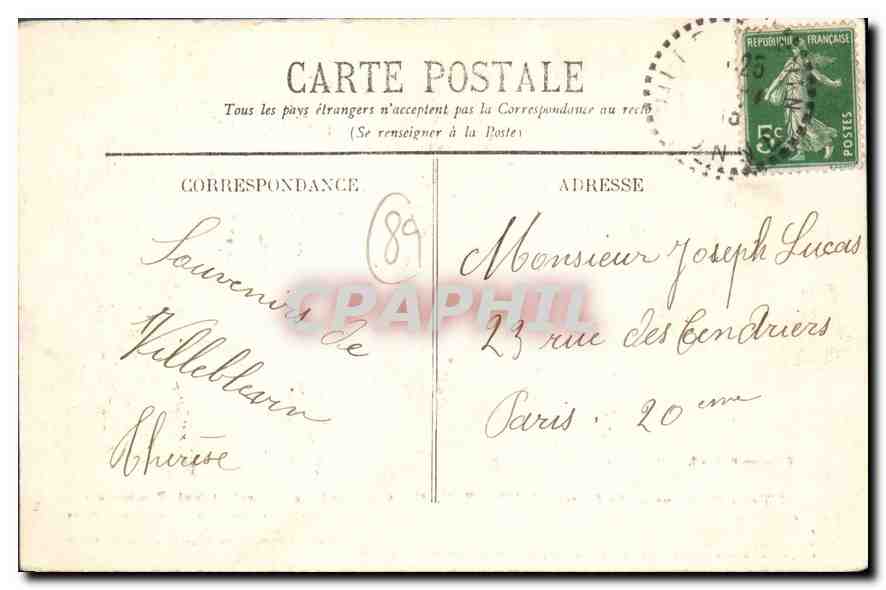 CARTE POSTALE
Tous les pays étrangers n'acceptent pas la Correspondance au recto
(Se renseigner à la Poste)
REPUBLIQUE FRANÇAISE
5c
POSTES
CORRESPONDANCE
ADRESSE
89
Souvenirs de
Villeblevin
Thérèse
CPAPHIL
Monsieur Joseph Lucas
23 rue des Cendriers
Paris. 20eme